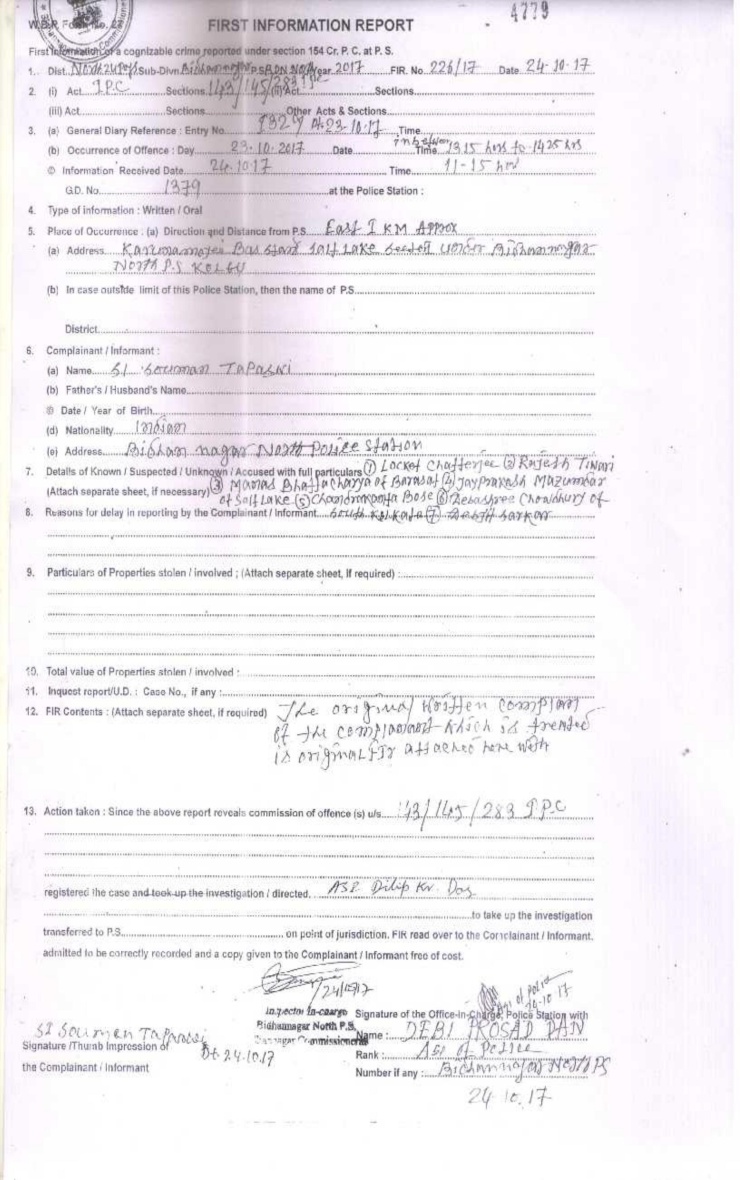 4779
W.B.P. Form No. 27
FIRST INFORMATION REPORT
First Information of a cognizable crime reported under section 154 Cr. P. C. at P. S.
1. Dist. North 24 Pgs Sub-Divn. Bidhannagar P.S. BDN North Year 2017 FIR. No. 226/17 Date 24-10-17
2. (i) Act I.P.C Sections 143/145/283 IPC (ii) Act Sections
(iii) Act Sections Other Acts & Sections
3. (a) General Diary Reference : Entry No. 1329 dt. 23-10-17 Time
(b) Occurrence of Offence : Day 23-10-2017 Date Time in between 1315 hrs to 1425 hrs
© Information Received Date 24.10.17 Time 11-15 hrs
G.D. No. 1379 at the Police Station :
4. Type of information : Written / Oral
5. Place of Occurrence : (a) Direction and Distance from P.S. East 1 KM Approx
(a) Address Karunamoyee Bus stand Salt Lake under Bidhannagar
North P.S.
(b) In case outside limit of this Police Station, then the name of P.S.
District
6. Complainant / Informant :
(a) Name SI Souman Tapaswi
(b) Father's / Husband's Name
© Date / Year of Birth
(d) Nationality Indian
(e) Address Bidhan nagar North Police Station
7. Details of Known / Suspected / Unknown / Accused with full particulars ① Locket Chatterjee ② Rajesh Tiwari
(Attach separate sheet, if necessary) ③ Manas Bhattacharya of Barasat ④ Jayprakash Mazumdar
of Salt Lake ⑤ Chandrakanta Bose ⑥ Debashree Chowdhury of
8. Reasons for delay in reporting by the Complainant / Informant South Kolkata ⑦ Sarkar
9. Particulars of Properties stolen / involved ; (Attach separate sheet, if required) :
10. Total value of Properties stolen / involved :
11. Inquest report/U.D. : Case No., if any :
12. FIR Contents : (Attach separate sheet, if required) The original written complaint
of the complainant which is treated
is original FIR attached here with
13. Action taken : Since the above report reveals commission of offence (s) u/s 143/145/283 I.P.C
registered the case and took up the investigation / directed ASI Dilip Kr. Das
to take up the investigation
transferred to P.S. on point of jurisdiction. FIR read over to the Complainant / Informant.
admitted to be correctly recorded and a copy given to the Complainant / Informant free of cost.
24/10/17
Inspector In-charge
Bidhannagar North P.S.
Bidhannagar Commissionerate
ASI of Police
24-10 17
Signature of the Office-in-Charge, Police Station with
Name : DEBI PROSAD PAN
Rank : ASI of Police
Number if any : Bidhannagar North PS
24.10.17
SI Soumen Tapaswi
Dt 24.10.17
Signature /Thumb Impression of
the Complainant / Informant